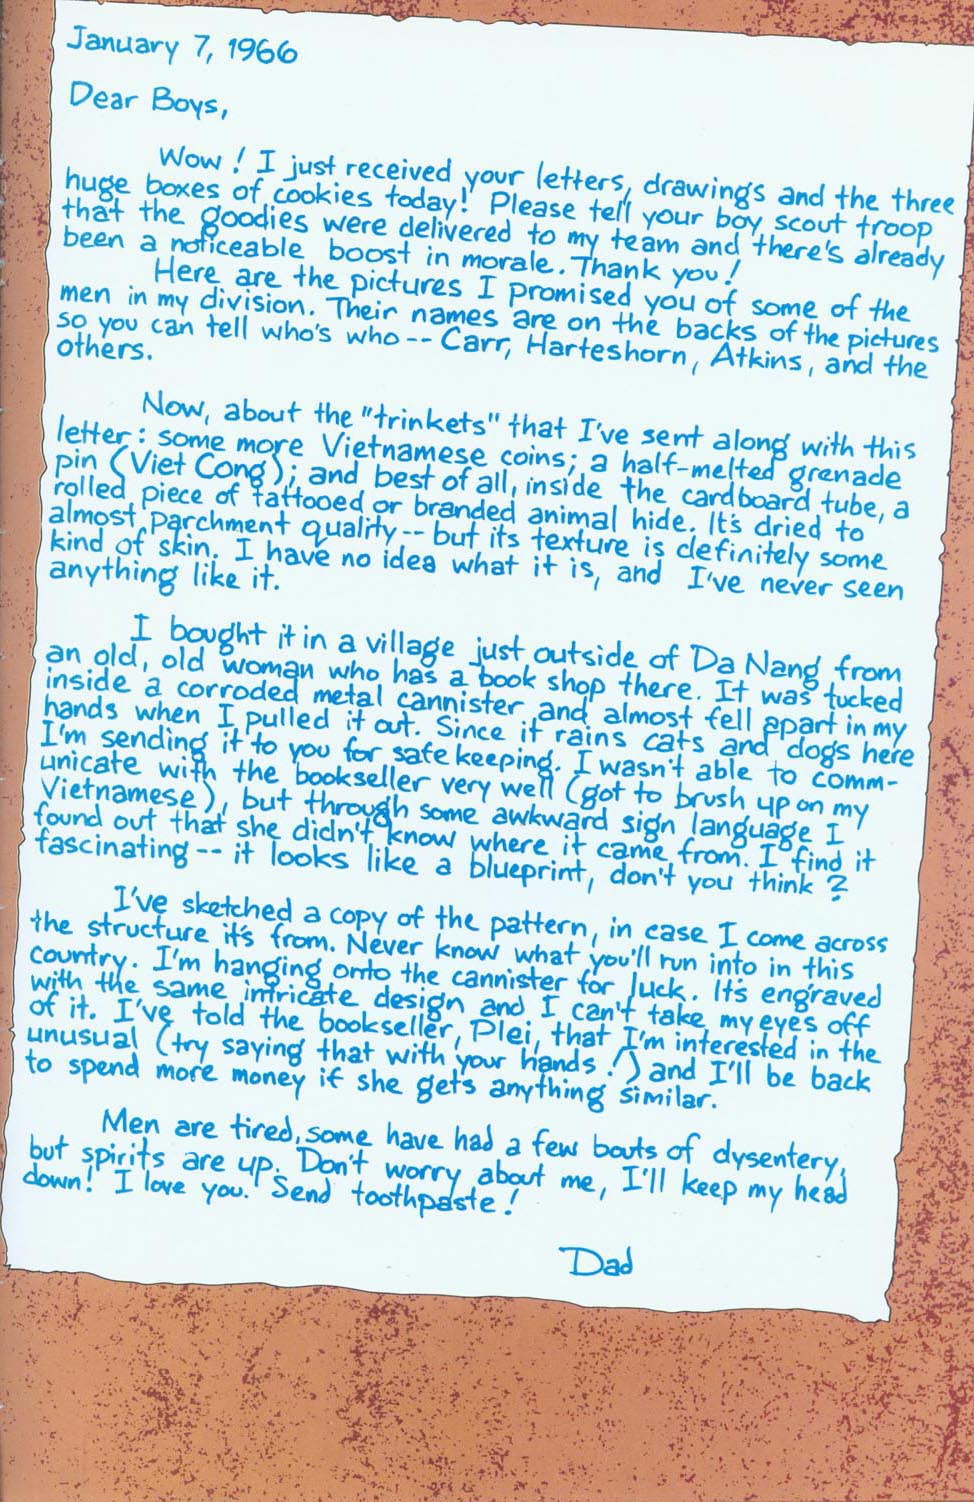 January 7, 1966
Dear Boys,
Wow! I just received your letters, drawings and the three
huge boxes of cookies today! Please tell your boy scout troop
that the goodies were delivered to my team and there's already
been a noticeable boost in morale. Thank you!
Here are the pictures I promised you of some of the
men in my division. Their names are on the backs of the pictures
so you can tell who's who -- Carr, Harteshorn, Atkins, and the
others.
Now, about the "trinkets" that I've sent along with this
letter: some more Vietnamese coins; a half-melted grenade
pin (Viet Cong); and best of all, inside the cardboard tube, a
rolled piece of tattooed or branded animal hide. It's dried to
almost parchment quality -- but its texture is definitely some
kind of skin. I have no idea what it is, and I've never seen
anything like it.
I bought it in a village just outside of Da Nang from
an old, old woman who has a book shop there. It was tucked
inside a corroded metal cannister and almost fell apart in my
hands when I pulled it out. Since it rains cats and dogs here
I'm sending it to you for safe keeping. I wasn't able to comm-
unicate with the bookseller very well (got to brush up on my
Vietnamese), but through some awkward sign language I
found out that she didn't know where it came from. I find it
fascinating -- it looks like a blueprint, don't you think?
I've sketched a copy of the pattern, in case I come across
the structure it's from. Never know what you'll run into in this
country. I'm hanging onto the cannister for luck. It's engraved
with the same intricate design and I can't take my eyes off
of it. I've told the bookseller, Plei, that I'm interested in the
unusual (try saying that with your hands!) and I'll be back
to spend more money if she gets anything similar.
Men are tired, some have had a few bouts of dysentery,
but spirits are up. Don't worry about me, I'll keep my head
down! I love you. Send toothpaste!
Dad